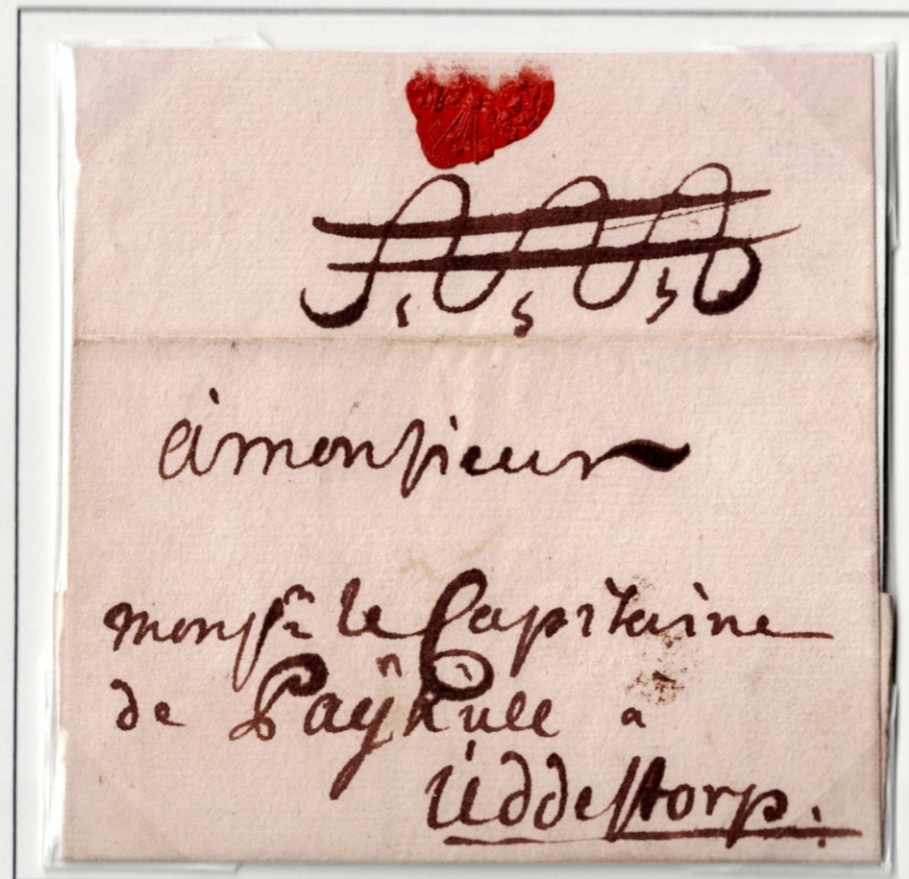 à monsieur
monsr le Capitaine
de Paÿkull à
Uddestorp.